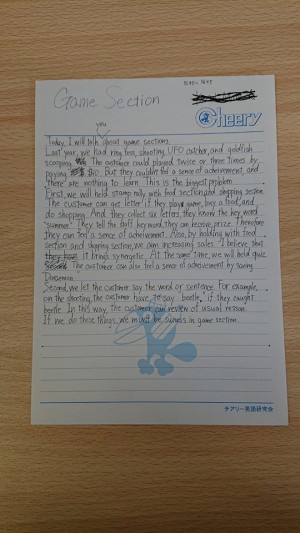 Game Section
Cheery
you
Today, I will talk about game sections.
Last year, we had ring toss, shooting, UFO catcher, and goldfish
scooping. The customer could played twice or three times by
paying But they couldn't feel a sense of acheivement, and
there are nothing to learn. This is the biggest problem.
First, we will held stamp rally with food section, and shopping section.
The customer can get letter if they plays game, buy a food, and
do shopping. And they collect six letters, they know the key word
"summer." They tell the staff keyword, they can receive prize. Therefore,
they can feel a sense of acheivement. Also, by holding with food
section and shopping section, we can increasing sales. I believe that
it brings synergetic. At the same time, we will held quiz
The customer can also feel a sense of acheivement by saving
Doraemon.
Second, we let the customer say the word or sentence. For example,
on the shooting, the customer have to say "beetle," if they caught
beetle. In this way, the customer can review of usual lesson.
If we do these things, we must be sucess in game section.
チアリー英語研究会